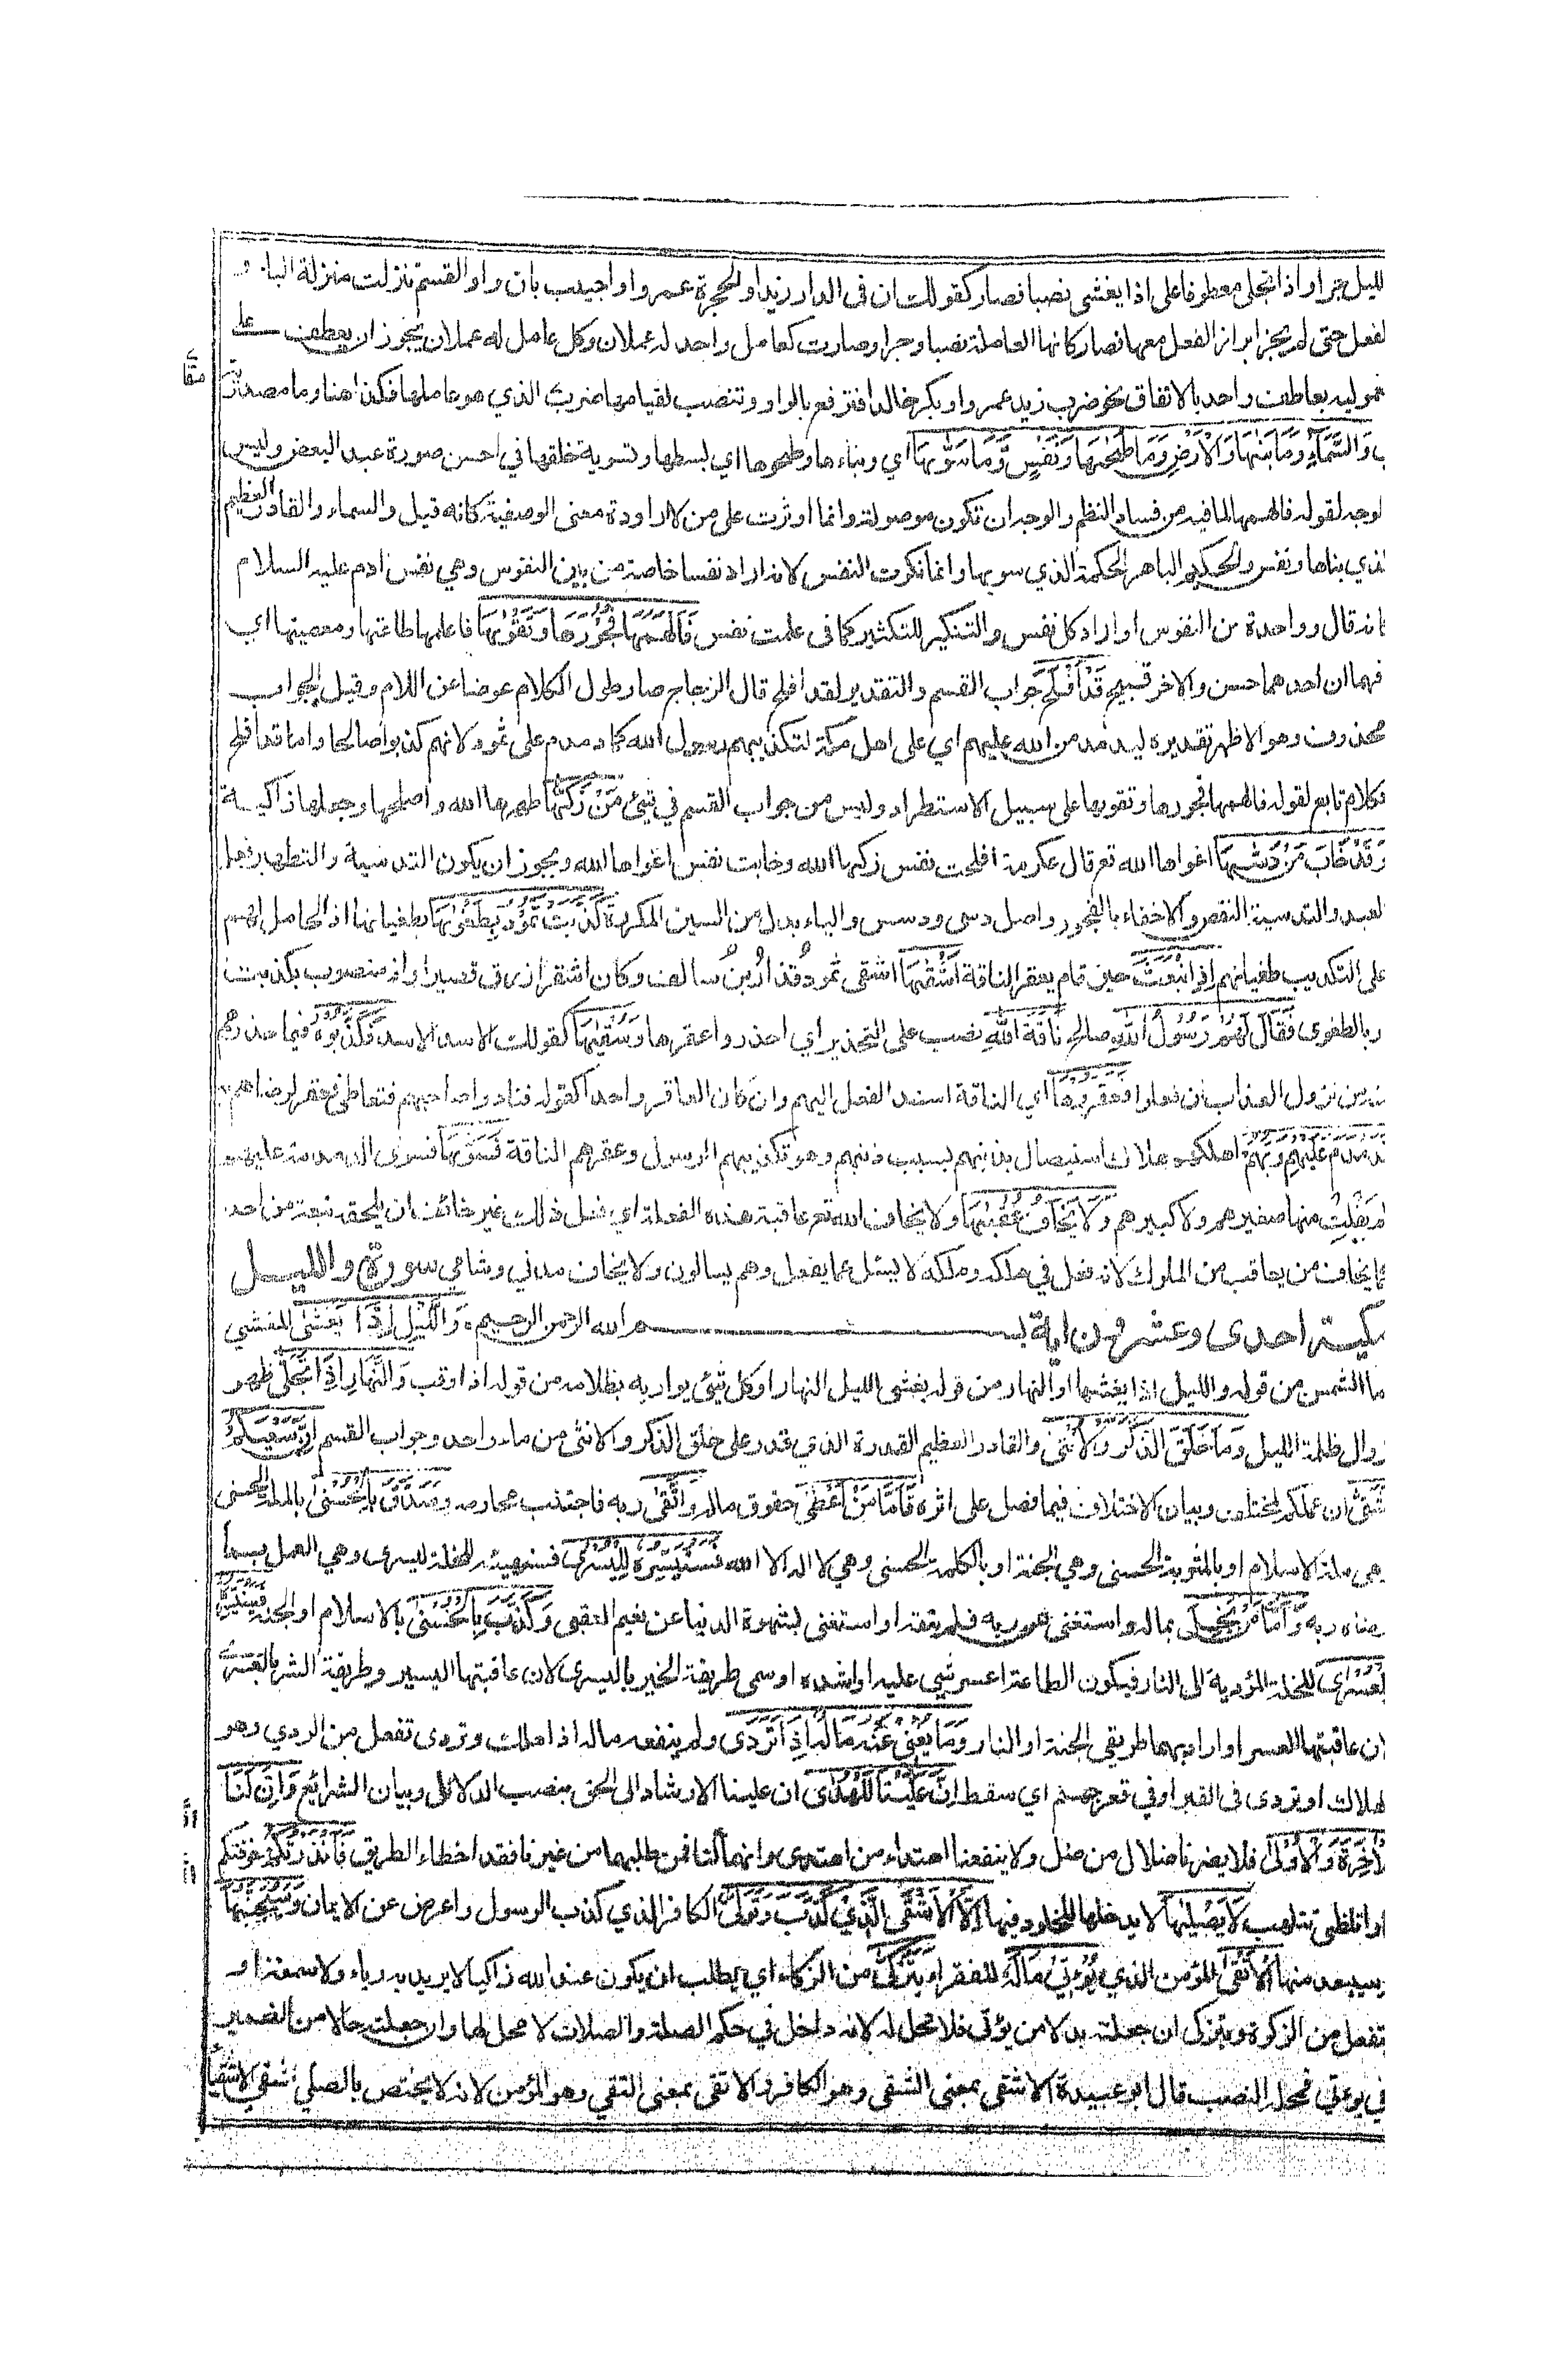 لليل جرا واذا تجلى معطوفا على اذا يغشى نصبا فصار كقولك ان فى الدار زيدا والحجرة عمروا واجيب بان واو القسم نزلت منزلة الباء و
لفعل حتى لم يجز ابراز الفعل معها فصار كانها العاملة نصبا وجرا وصارت كعامل واحد له عملان وكل عامل له عملان يجوز ان يعطف على
معموليه بعاطف واحد بالاتفاق نحو ضرب زيد عمروا وبكر خالدا فترفع بالواو وتنصب لقيامها ضرب الذي هو عاملها فكذا هنا وما مصدرية
وَالسَّمَاءِ وَمَا بَنٰهَا وَالْاَرْضِ وَمَا طَحٰهَا وَنَفْسٍ وَّمَا سَوّٰىهَا اي وبناءها وطحوها اي بسطها وتسوية خلقها في احسن صورة عند البعض وليس
لوجه لقوله فالهمها لما فيه من فساد النظم والوجه ان تكون موصولة وانما اوثرت على من لارادة معنى الوصفية كانه قيل والسماء والقادر العظيم
لذي بناها ونفس والحكيم الباهر الحكمة الذي سويها وانما نكرت النفس لانه اراد نفسا خاصة من بين النفوس وهي نفس ادم عليه السلام
كانه قال وواحدة من النفوس او اراد كل نفس والتنكير للتكثير كما فى علمت نفس فَاَلْهَمَهَا فُجُوْرَهَا وَتَقْوٰىهَا فاعلمها طاعتها ومعصيتها اي
فهما ان احدهما حسن والاخر قبيح قَدْ اَفْلَحَ جواب القسم والتقدير لقد افلح قال الزجاج صار طول الكلام عوضا عن اللام وقيل الجواب
محذوف وهو الاظهر تقديره ليدمدمن الله عليهم اي على اهل مكة لتكذيبهم رسول الله كما دمدم على ثمود لانهم كذبوا صالحا واما قد افلح
فكلام تابع لقوله فالهمها فجورها وتقويها على سبيل الاستطراد وليس من جواب القسم في شئ مَنْ زَكّٰىهَا طهرها الله واصلحها وجعلها زاكية
وَقَدْ خَابَ مَنْ دَسّٰىهَا اغواها الله تع قال عكرمة افلحت نفس زكيها الله وخابت نفس اغواها الله ويجوز ان يكون التدسية والتطهير فعل
لعبد والتدسية النقص والاخفاء بالفجور واصل دسى ودسس والياء بدل من السين المكررة كَذَّبَتْ ثَمُوْدُ بِطَغْوٰىهَا بطغيانها اذ الحامل لهم
على التكذيب طغيانهم اِذِ انْبَعَثَ حين قام يعقر الناقة اَشْقٰىهَا اشقى ثمود قذار بن سالف وكان اشقر ازرق قصيرا واذ منصوب بكذبت
ربالطغوى فَقَالَ لَهُمْ رَسُوْلُ اللّٰهِ صالح نَاقَةَ اللّٰهِ نصب على التحذير اي احذروا عقرها وَسُقْيٰهَا كقولك الاسد الاسد فَكَذَّبُوْهُ فيما حذرهم
منه من نزول العذاب ان فعلوا فَعَقَرُوْهَا اي الناقة اسند الفعل اليهم وان كان العاقر واحدا كقوله فنادوا صاحبهم فتعاطى فعقر لرضاهم به
فَدَمْدَمَ عَلَيْهِمْ رَبُّهُمْ اهلكهم هلاك استيصال بِذَنْبِهِمْ بسبب ذنبهم وهو تكذيبهم الرسول وعقرهم الناقة فَسَوّٰىهَا فسوى الدمدمة عليهم
لم يفلت منها صغيرهم ولا كبيرهم وَلَا يَخَافُ عُقْبٰىهَا ولا يخاف الله تع عاقبة هذه الفعلة اي فعل ذلك غير خائف ان يلحقه تبعة من احد
كما يخاف من يعاقب من الملوك لانه فعل في ملكه وملكه لا يسئل عما يفعل وهم يسالون ولا يخاف مدني وشامي سورة والليل
مكية احدى وعشرون اية بسم الله الرحمن الرحيم وَاللَّيْلِ اِذَا يَغْشٰى المغشي
اما الشمس من قوله والليل اذا يغشيها او النهار من قوله يغشى الليل النهار او كل شئ يواريه بظلامه من قوله اذا وقب وَالنَّهَارِ اِذَا تَجَلّٰى ظهر
زوال ظلمة الليل وَمَا خَلَقَ الذَّكَرَ وَالْاُنْثٰى والقادر العظيم القدرة الذي قدر على خلق الذكر والانثى من ماء واحد وجواب القسم اِنَّ سَعْيَكُمْ
لَشَتّٰى ان عملكم لمختلف وبيان الاختلاف فيما فصل على اثره فَاَمَّا مَنْ اَعْطٰى حقوق ماله وَاتَّقٰى ربه فاجتنب محارمه وَصَدَّقَ بِالْحُسْنٰى بالملة الحسنى
وهي ملة الاسلام او بالمثوبة الحسنى وهي الجنة او بالكلمة الحسنى وهي لا اله الا الله فَسَنُيَسِّرُهٗ لِلْيُسْرٰى فسنهيئه للخلة ليسرى وهي العمل بما
يرضاه ربه وَاَمَّا مَنْ بَخِلَ بماله واستغنى عن ربه فلم يتقه او استغنى بشهوة الدنيا عن نعيم العقبى وَكَذَّبَ بِالْحُسْنٰى بالاسلام او الجنة فَسَنُيَسِّرُهٗ
لِلْعُسْرٰى للخلة المؤدية الى النار فيكون الطاعة اعسر شي عليه او اشده او سمى طريقة الخير باليسرى لان عاقبتها اليسير وطريقة الشر بالعسرى
لان عاقبتها العسر او اراد بهما طريقي الجنة او النار وَمَا يُغْنِيْ عَنْهُ مَالُهٗ اِذَا تَرَدّٰى ولم ينفعه ماله اذا هلك وتردى تفعل من الردي وهو
لهلاك او تردى فى القبر او في قعر جهنم اي سقط اِنَّ عَلَيْنَا لَلْهُدٰى ان علينا الارشاد الى الحق بنصب الدلائل وبيان الشرائع وَاِنَّ لَنَا
لَلْاٰخِرَةَ وَالْاُوْلٰى فلا يضرنا ضلال من ضل ولا ينفعنا اهتداء من اهتدى وانهما لنا فمن طلبهما من غيرنا فقد اخطاء الطريق فَاَنْذَرْتُكُمْ خوفتكم
نارا تلظى تتلهب لَا يَصْلٰىهَا لا يدخلها للخلود فيها اِلَّا الْاَشْقَى الَّذِيْ كَذَّبَ وَتَوَلّٰى الكافر الذي كذب الرسول واعرض عن الايمان وَسَيُجَنَّبُهَا
وسيبعد منها الْاَتْقٰى المؤمن الذي يُؤْتِيْ مَالَهٗ للفقراء يَتَزَكّٰى من الزكاء اي يطلب ان يكون عند الله زاكيا لا يريد به رياء ولا سمعة او
تفعل من الزكوة ويتزكى ان جعلته بدلا من يؤتى فلا محل له لانه داخل في حكم الصلة والصلات لا محل لها وان جعلته حالا من الضمير
في يوتي فمحله النصب قال ابو عبيدة الاشقى بمعنى الشقى وهو الكافر والاتقى بمعنى التقي وهو المؤمن لانه لا يختص بالصلي اشقى الاشقياء